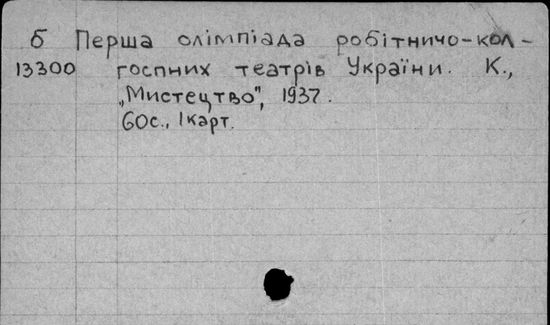 б Перша олімпіада робітничо-кол-
13300 госпних театрів України. К.,
„Мистецтво", 1937.
60с., 1карт.